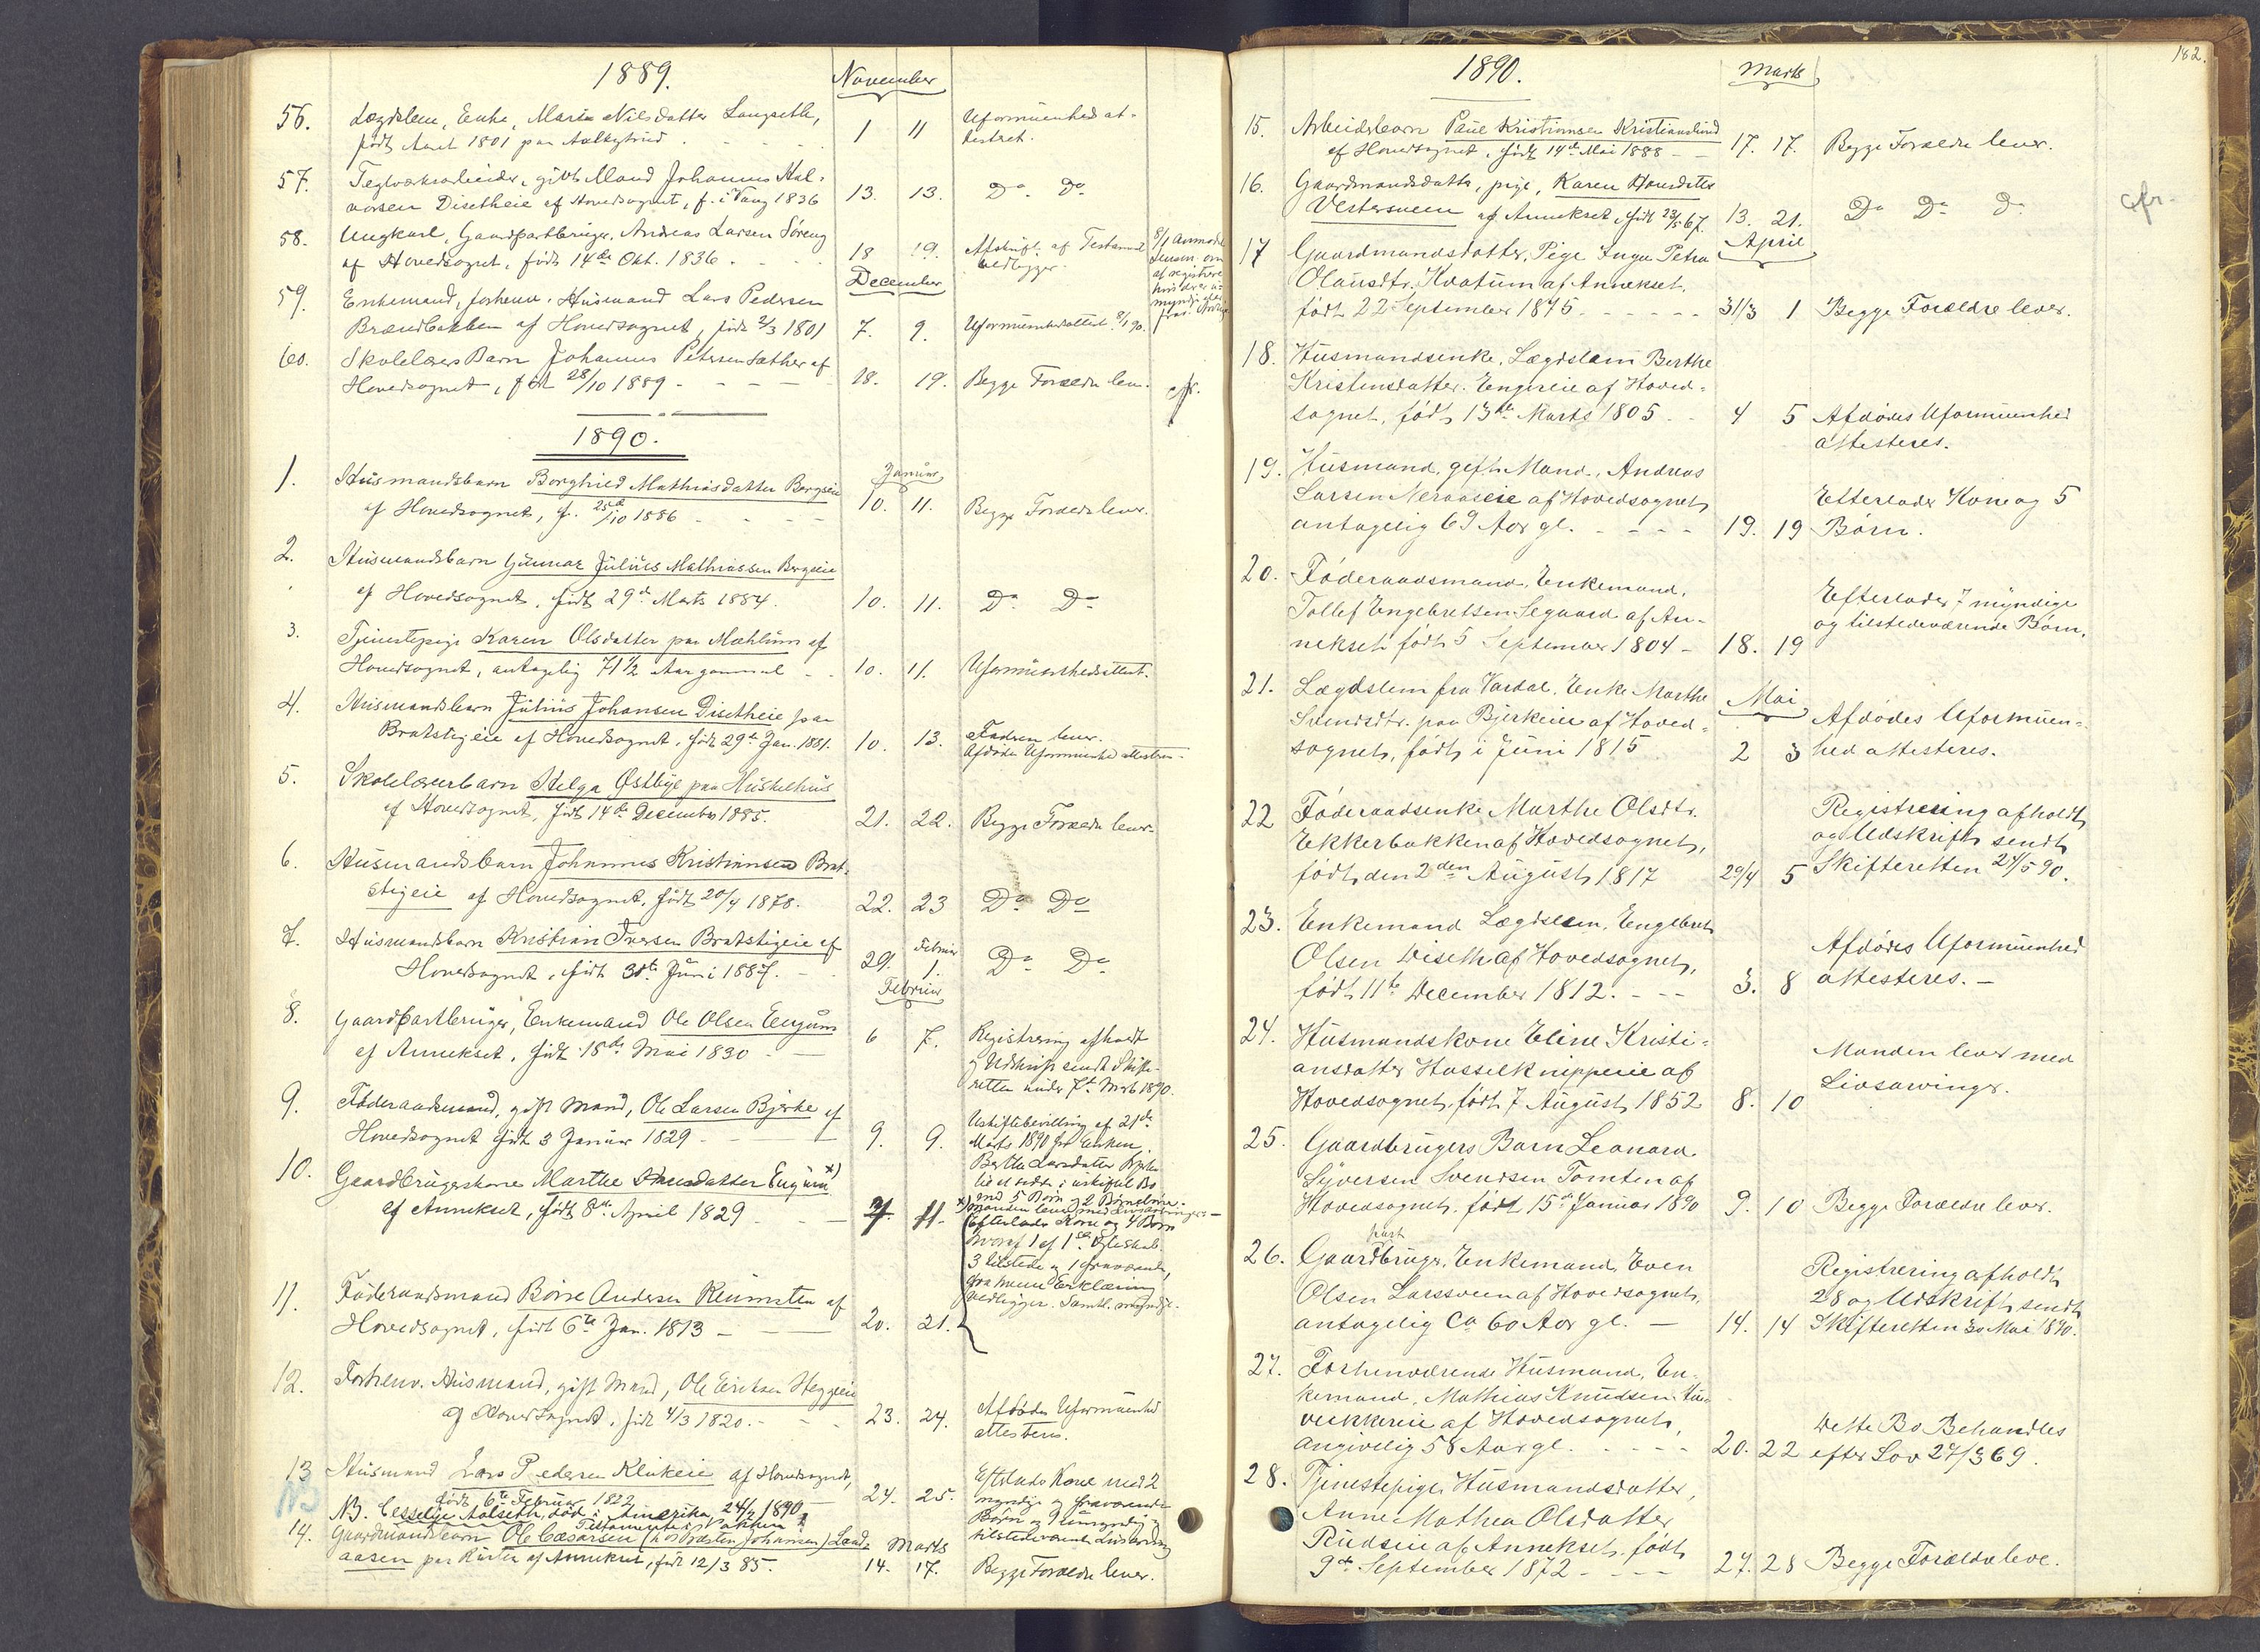 1889.
November
56. Lægdslem, Enke, Marie Nilsdatter Langseth, 1 11 Uformuenhed at-
født Aaret 1801 paa . . . testeret.
57. Teglværksarbeider, gift Mand Johannes Hal-
vorsen Disetheie af Hovedsognet, f. i Vang 1836 13. 13. Do. Do
58. Ungkarl, Gaardpartbruger, Andreas Larsen Søreng
af Hovedsognet, født 14de Okt. 1836. 18 19. Afskrift af Testament
vedlægges.
8/1 anmodet
om
December
59. Enkemand, forhenv. Husmand Lars Pedersen
Brændbakken af Hovedsognet, født 2/3 1801 7. 9. Uformuenhedsattest 8/1 90.
60. Skolelærers Barn Johannes Petersen Sæther af
Hovedsognet, født 28/10 1889 - - - 18. 19. Begge Forældre lever. cfr.
1890.
Januar
1. Husmandsbarn Borghild Mathiasdatter Bergseie
af Hovedsognet, f. 25de/10 1886 - - - 10. 11. Begge Forældre lever.
2. Husmandsbarn Gunnar Julius Mathiassen Bergseie
af Hovedsognet, født 29de Marts 1884. 10. 11. Do. Do
3. Tjenestepige Karen Olsdatter paa Mæhlum af
Hovedsognet, antagelig 71 1/2 Aar gammel 10. 11. Uformuenhedsattest.
4. Husmandsbarn Julius Johansen Disetheie paa
Bratstigeie af Hovedsognet, født 29de Jan. 1881. 10. 13. Faderen lever.
Afdødes Uformuenhed attesteres.
5. Skolelærerbarn Helga Østbye paa Hushelhus
af Hovedsognet, født 14de December 1885. 21. 22. Begge Forældre lever.
6. Husmandsbarn Johannes Kristiansen Brat-
stigeie af Hovedsognet, født 20/4 1878. 22. 23 Do Do
7. Husmandsbarn Kristian Iversen Bratstigeie af
Hovedsognet, født 30te Juni 1887. 29. Februar 1. Do Do
Februar
8. Gaardpartbruger, Enkemand Ole Olsen Engum
af Annekset, født 18de Mai 1830 - - 6 7. Registrering afholdt
og Udskrift sendt Skifte-
retten under 7de Marts 1890.
9. Føderaadsmand, gift Mand, Ole Larsen Bjerke af
Hovedsognet født 3 Januar 1829 - - - 9. 9. Uskiftebevilling af 21de
Marts 1890 for Enken,
Berthe Larsdatter Bjerke
til at sidde i uskiftet Bo
med 5 Børn og 2 Børnebørn.
10. Gaardbrugerskone Marthe Knudsdatter Engum x)
af Annekset, født 8de April 1829 - - 7. 11. x) Manden lever med Livsarvinger. -
Efterlader Kone og 4 Børn
hvoraf 1 af 1ste Egteskab
3 tilstede og 1 fraværende,
fra hvem Erklæring
vedligger. Samtl. myndige.
11. Føderaadsmand Børre Andersen Reinsten af
Hovedsognet, født 6te Jan. 1813 - - - 20. 21.
12. Forhenv. Husmand, gift Mand, Ole Eriksen Heggeie
af Hovedsognet, født 4/3 1820. - - 23. 24. Afdødes Uformuenhed
attesteres.
13 Husmand Lars Pedersen Klukeie af Hovedsognet,
født 6te Februar 1822 24. 25. Efterlader Kone med 2
myndige og fraværende
Børn og 9 umyndige
tilstedeværende Livsarving
NB NB. Cesselie Aalseth, død i Amerika 24/2 1890 -
Testamente i Pakken
14. Gaardmandsbarn Ole Cæsarsen (hos Presten Johansen) Land-
aasen paa af Annekset, født 12/3 85. Marts 14. 17. Begge Forældre lever.
162.
1890.
Marts
15. Arbeidsbarn Paul Kristiansen Kristianslund
af Hovedsognet, født 14de Mai 1888 - - 17. 17. Begge Forældre lever.
16. Gaardmandsdatter, pige, Karen Hansdatter
Vestersveen af Annekset, født 23/5 67. 13. 21. Do Do Do cfr.
April
17 Gaardmandsdatter, Pige Inga Petra
Olausdtr. Kvatum af Annekset,
født 22 September 1875 - - - - - 31/3 1 Begge Forældre lever.
18. Husmandsenke, Lægdslem Berthe
Kristensdatter Engereie af Hoved-
sognet, født 13de Marts 1805 - - 4 5 Afdødes Uformuenhed
attesteres.
19. Husmand, gift Mand, Andreas
Larsen Neraaseie af Hovedsognet,
antagelig 69 Aar gl. - - - - 19. 19 Efterlader Kone og 5
Børn.
20. Føderaadsmand, Enkemand,
Tollef Engebretsen Segaard af An-
nekset født 5 September 1804 - 18. 19 Efterlader 7 myndige
og tilstedeværende Børn.
21. Lægdslem fra Vardal, Enke Marthe
Svendsdtr. paa Bjerkeie af Hoved-
sognet, født i Juni 1815 Mai 2 3 Afdødes Uformuen-
hed attesteres.
22 Føderaadsenke Marthe Olsdtr.
Ekkerbakken af Hovedsognet,
født den 2den August 1817 29/4 5 Registrering afholdt
og Udskrift sendt
Skifteretten 24/5 90.
23. Enkemand Lægdslem, Engebret
Olsen Diseth af Hovedsognet,
født 11te December 1812. - - - 3. 8 Afdødes Uformuenhed
attesteres. -
24. Husmandskone Eline Kristi-
ansdatter Hasselknippeie af
Hovedsognet født 7 August 1852 8. 10 Manden lever med
Livsarvinger.
25. Gaardbrugers Barn Leonard
Syversen Svendsen Tomten af
Hovedsognet født 15de Januar 1890 9. 10 Begge Forældre lever.
26. Gaardpartbruger, Enkemand, Even
Olsen Larssveen af Hovedsognet,
antagelig Ca 60 Aar gl. - 14. 14 Registrering afholdt
28 og Udskrift sendt
Skifteretten 30 Mai 1890.
27. Forhenværende Husmand, En-
kemand, Mathias Knudsen
af Hovedsognet,
angivelig 58 Aar gl. - - - - 20. 22 Dette Bo Behandles
efter Lov 27/3 69.
28. Tjenestepige, Husmandsdatter,
Anne Mathea Olsdatter
Rudseie af Annekset, født
9de September 1872 - - - - 27. 28 Begge Forældre leve.